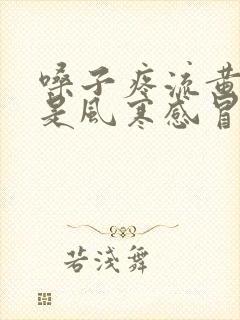 嗓子疼流黄
是风寒感冒
若淺舞